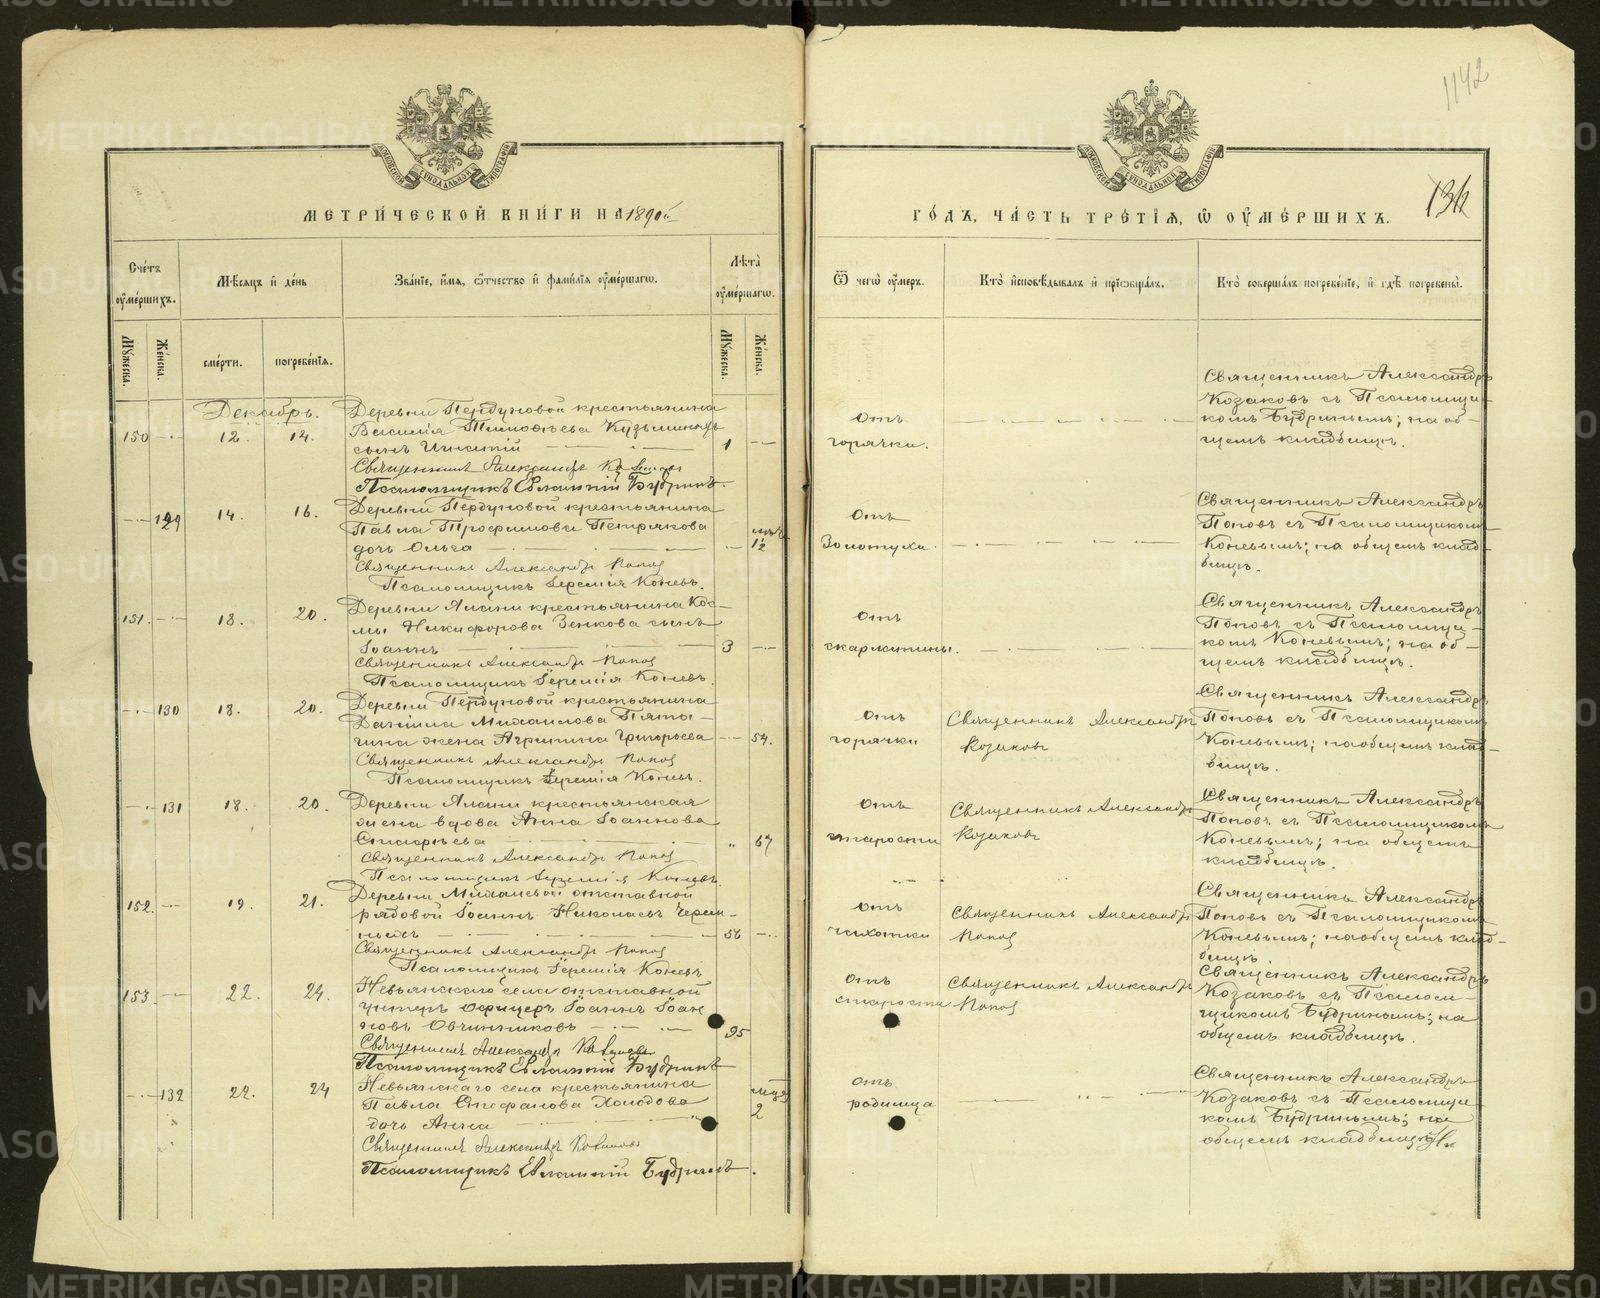 МЕТРИ́ЧЕСКОЙ КНИ́ГИ НА 1890й
ГО́ДЪ, ЧА́СТЬ ТРЕ́ТІЯ, Ѡ ОУМЕ́РШИХЪ.
1142
Сче́тъ оуме́ршихъ.
Мѣ́сяцъ и де́нь
Зва́ніе, и́мя, ѻ́тчество и фами́лія оуме́ршагѡ.
Лѣ́та оуме́ршагѡ.
Ѿ чегѡ̀ оу́меръ.
Кто̀ исповѣ́дывалъ и пріѡбща́лъ.
Кто̀ соверша́лъ погребе́ніе, и гдѣ̀ погребены̀.
Му́жеска.
Же́нска.
сме́рти.
погребе́нія.
Му́жеска.
Же́нска.
Декабрь.
150 12. 14.
Деревни Пердуновой крестьянина
Василія Тимоѳѣева Кузьминыхъ
сынъ 1
Священникъ Александръ Козаковъ
Псаломщикъ Евлампій Будринъ.
отъ
горячки.
Священникъ Александръ
Козаковъ съ Псаломщи-
комъ Будринымъ; на об-
щемъ кладбищѣ.
129 14. 16.
Деревни Пердуновой крестьянина
Павла Трофимова Петрякова
дочь Ольга 1/2
Священникъ Александръ Поповъ
Псаломщикъ Іеремія Коневъ.
Отъ
Золотухи.
Священникъ Александръ
Поповъ съ Псаломщикомъ
Коневымъ; на общемъ клад-
бищѣ.
151. 18. 20.
Деревни Ялани крестьянина Кос-
мы Никифорова Зенкова сынъ
Іоаннъ 3
Священникъ Александръ Поповъ
Псаломщикъ Іеремія Коневъ.
отъ
скарлатины.
Священникъ Александръ
Поповъ съ Псаломщи-
комъ Коневымъ; на об-
щемъ кладбищѣ.
130 18. 20.
Деревни Пердуновой крестьянина
Даніила Михаилова Пята-
жена Агрипина Григорьева 54.
Священникъ Александръ Поповъ
Псаломщикъ Іеремія Коневъ.
отъ
горячки
Священникъ Александръ
Козаковъ
Священникъ Александръ
Поповъ съ Псаломщикомъ
Коневымъ; на общемъ клад-
бищѣ.
131 18. 20.
Деревни Ялани крестьянская
жена вдова Анна Іоаннова
67
Священникъ Александръ Поповъ
Псаломщикъ Іеремія Коневъ.
отъ
старости
Священникъ Александръ
Козаковъ
Священникъ Александръ
Поповъ съ Псаломщикомъ
Коневымъ; на общемъ
кладбищѣ.
152. 19. 21.
Деревни отставной
рядовой Іоаннъ Николаевъ Черем-
ныхъ 56
Священникъ Александръ Поповъ
Псаломщикъ Іеремія Коневъ
отъ
чахотки
Священникъ Александръ
Поповъ
Священникъ Александръ
Поповъ съ Псаломщикомъ
Коневымъ; на общемъ клад-
бищѣ.
153. 22. 24.
Невьянскаго села отставной
унтеръ офицеръ Іоаннъ Іоан-
новъ Овчинниковъ 95
Священникъ Александръ Козаковъ
Псаломщикъ Евлампій Будринъ
отъ
старости
Священникъ Александръ
Поповъ
Священникъ Александръ
Козаковъ съ Псалом-
щикомъ Будринымъ; на
общемъ кладбищѣ.
132 22. 24
Невьянскаго села крестьянина
Павла Стефанова Холодова
дочь Анна 2
Священникъ Александръ Козаковъ
Псаломщикъ Евлампій Будринъ.
отъ
родимца
Священникъ Александръ
Козаковъ съ Псаломщи-
комъ Будринымъ; на
общемъ кладбищѣ
METRIKI.GASO-URAL.RU